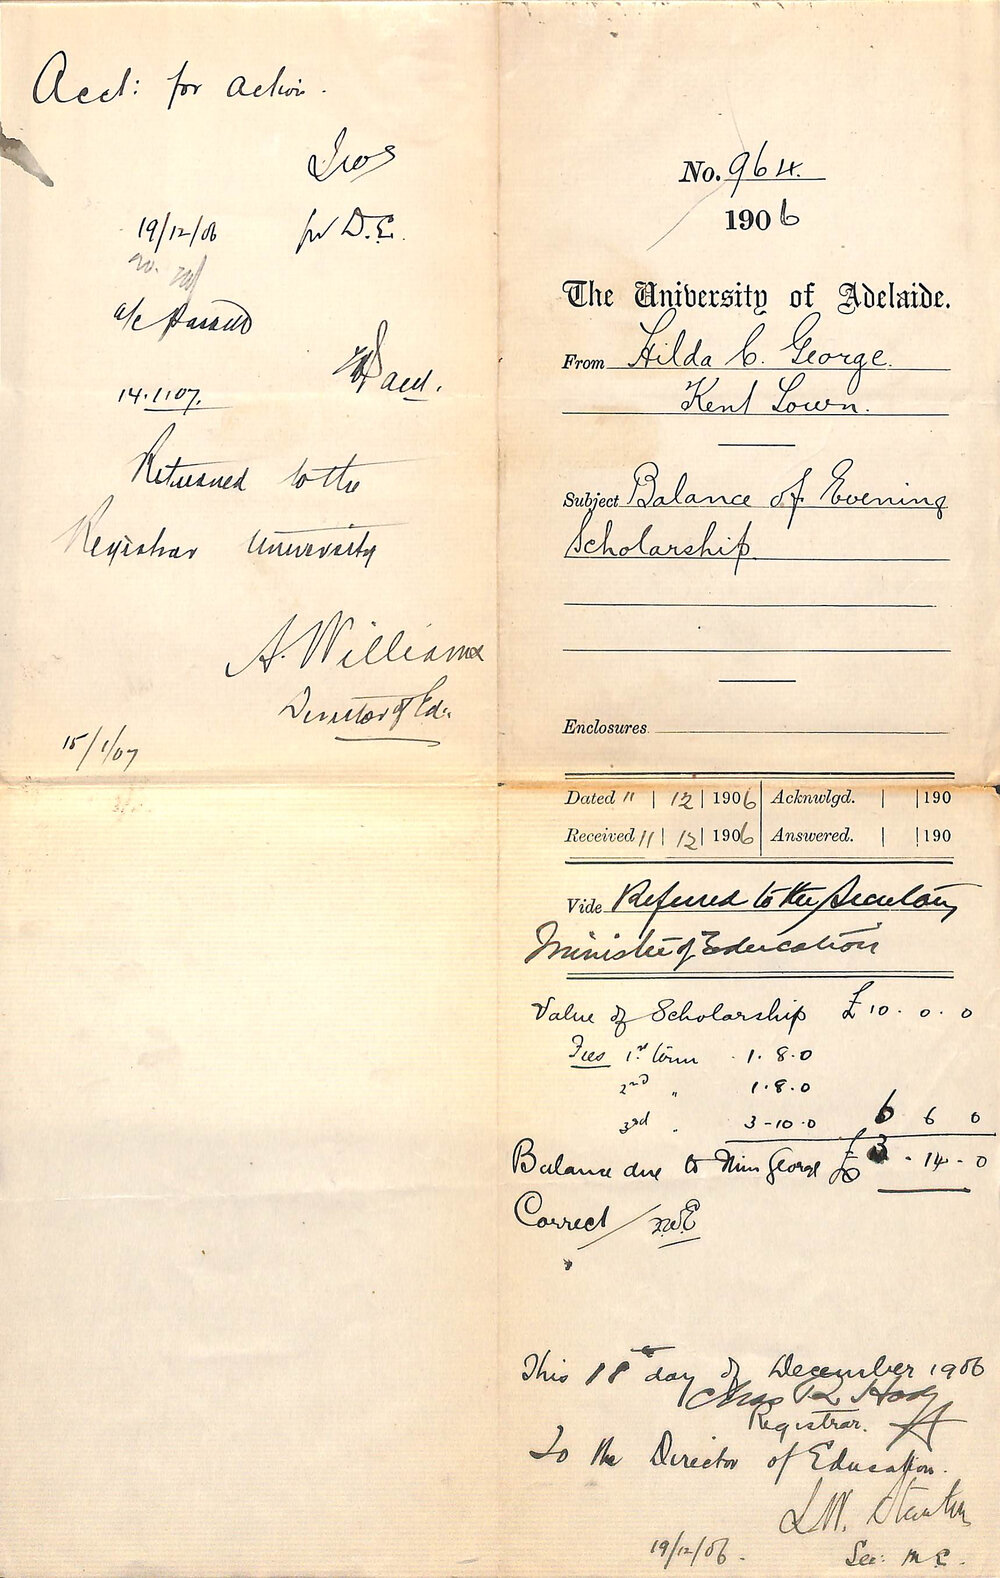 Acct: for action.
19/12/06 for D.E.
a/c Passed
14.1.07.
Returned to the
Registrar University
A. Williams
Director of Ed:
15/1/07
No. 964.
1906
The University of Adelaide.
From Hilda C. George.
Kent Town.
Subject Balance of Evening
Scholarship
Enclosures
Dated 11 | 12 | 1906 | Acknwlgd. | | 190
Received 11 | 12 | 1906 | Answered. | | 190
Vide Referred to the Secretary
Minister of Education
Value of Scholarship £ 10 . 0 . 0
Fees 1st term 1 . 8 . 0
2nd " 1 . 8 . 0
3rd " 3 - 10 . 0 6 6 0
Balance due to Miss George £ 3 . 14 . 0
Correct
This 18th day of December 1906
Chas R Hodge
Registrar.
To the Director of Education.
L.W. Stanton
19/12/06. Sec: M.E.